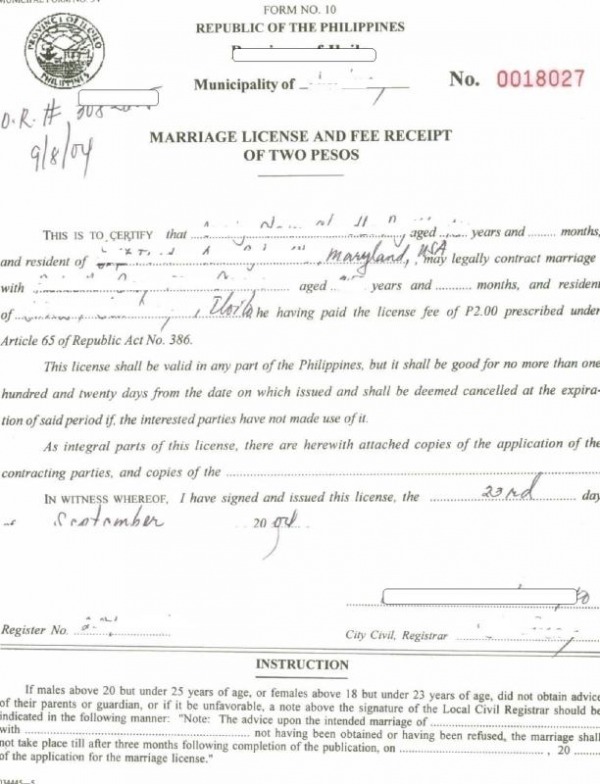 FORM NO. 10
REPUBLIC OF THE PHILIPPINES
PROVINCE OF ILOILO
PHILIPPINES
Municipality of
No. 0018027
O.R. #
9/8/04
MARRIAGE LICENSE AND FEE RECEIPT
OF TWO PESOS
THIS IS TO CERTIFY that , aged years and months,
and resident of , Maryland, USA may legally contract marriage
with aged years and months, and resident
of , Iloilo he having paid the license fee of P2.00 prescribed under
Article 65 of Republic Act No. 386.
This license shall be valid in any part of the Philippines, but it shall be good for no more than one
hundred and twenty days from the date on which issued and shall be deemed cancelled at the expira-
tion of said period if, the interested parties have not made use of it.
As integral parts of this license, there are herewith attached copies of the application of the
contracting parties, and copies of the
IN WITNESS WHEREOF, I have signed and issued this license, the 23rd day
September 2004
Register No.
City Civil, Registrar
INSTRUCTION
If males above 20 but under 25 years of age, or females above 18 but under 23 years of age, did not obtain advice
of their parents or guardian, or if it be unfavorable, a note above the signature of the Local Civil Registrar should be
indicated in the following manner: "Note: The advice upon the intended marriage of
with not having been obtained or having been refused, the marriage shall
not take place till after three months following completion of the publication, on , 20
of the application for the marriage license."